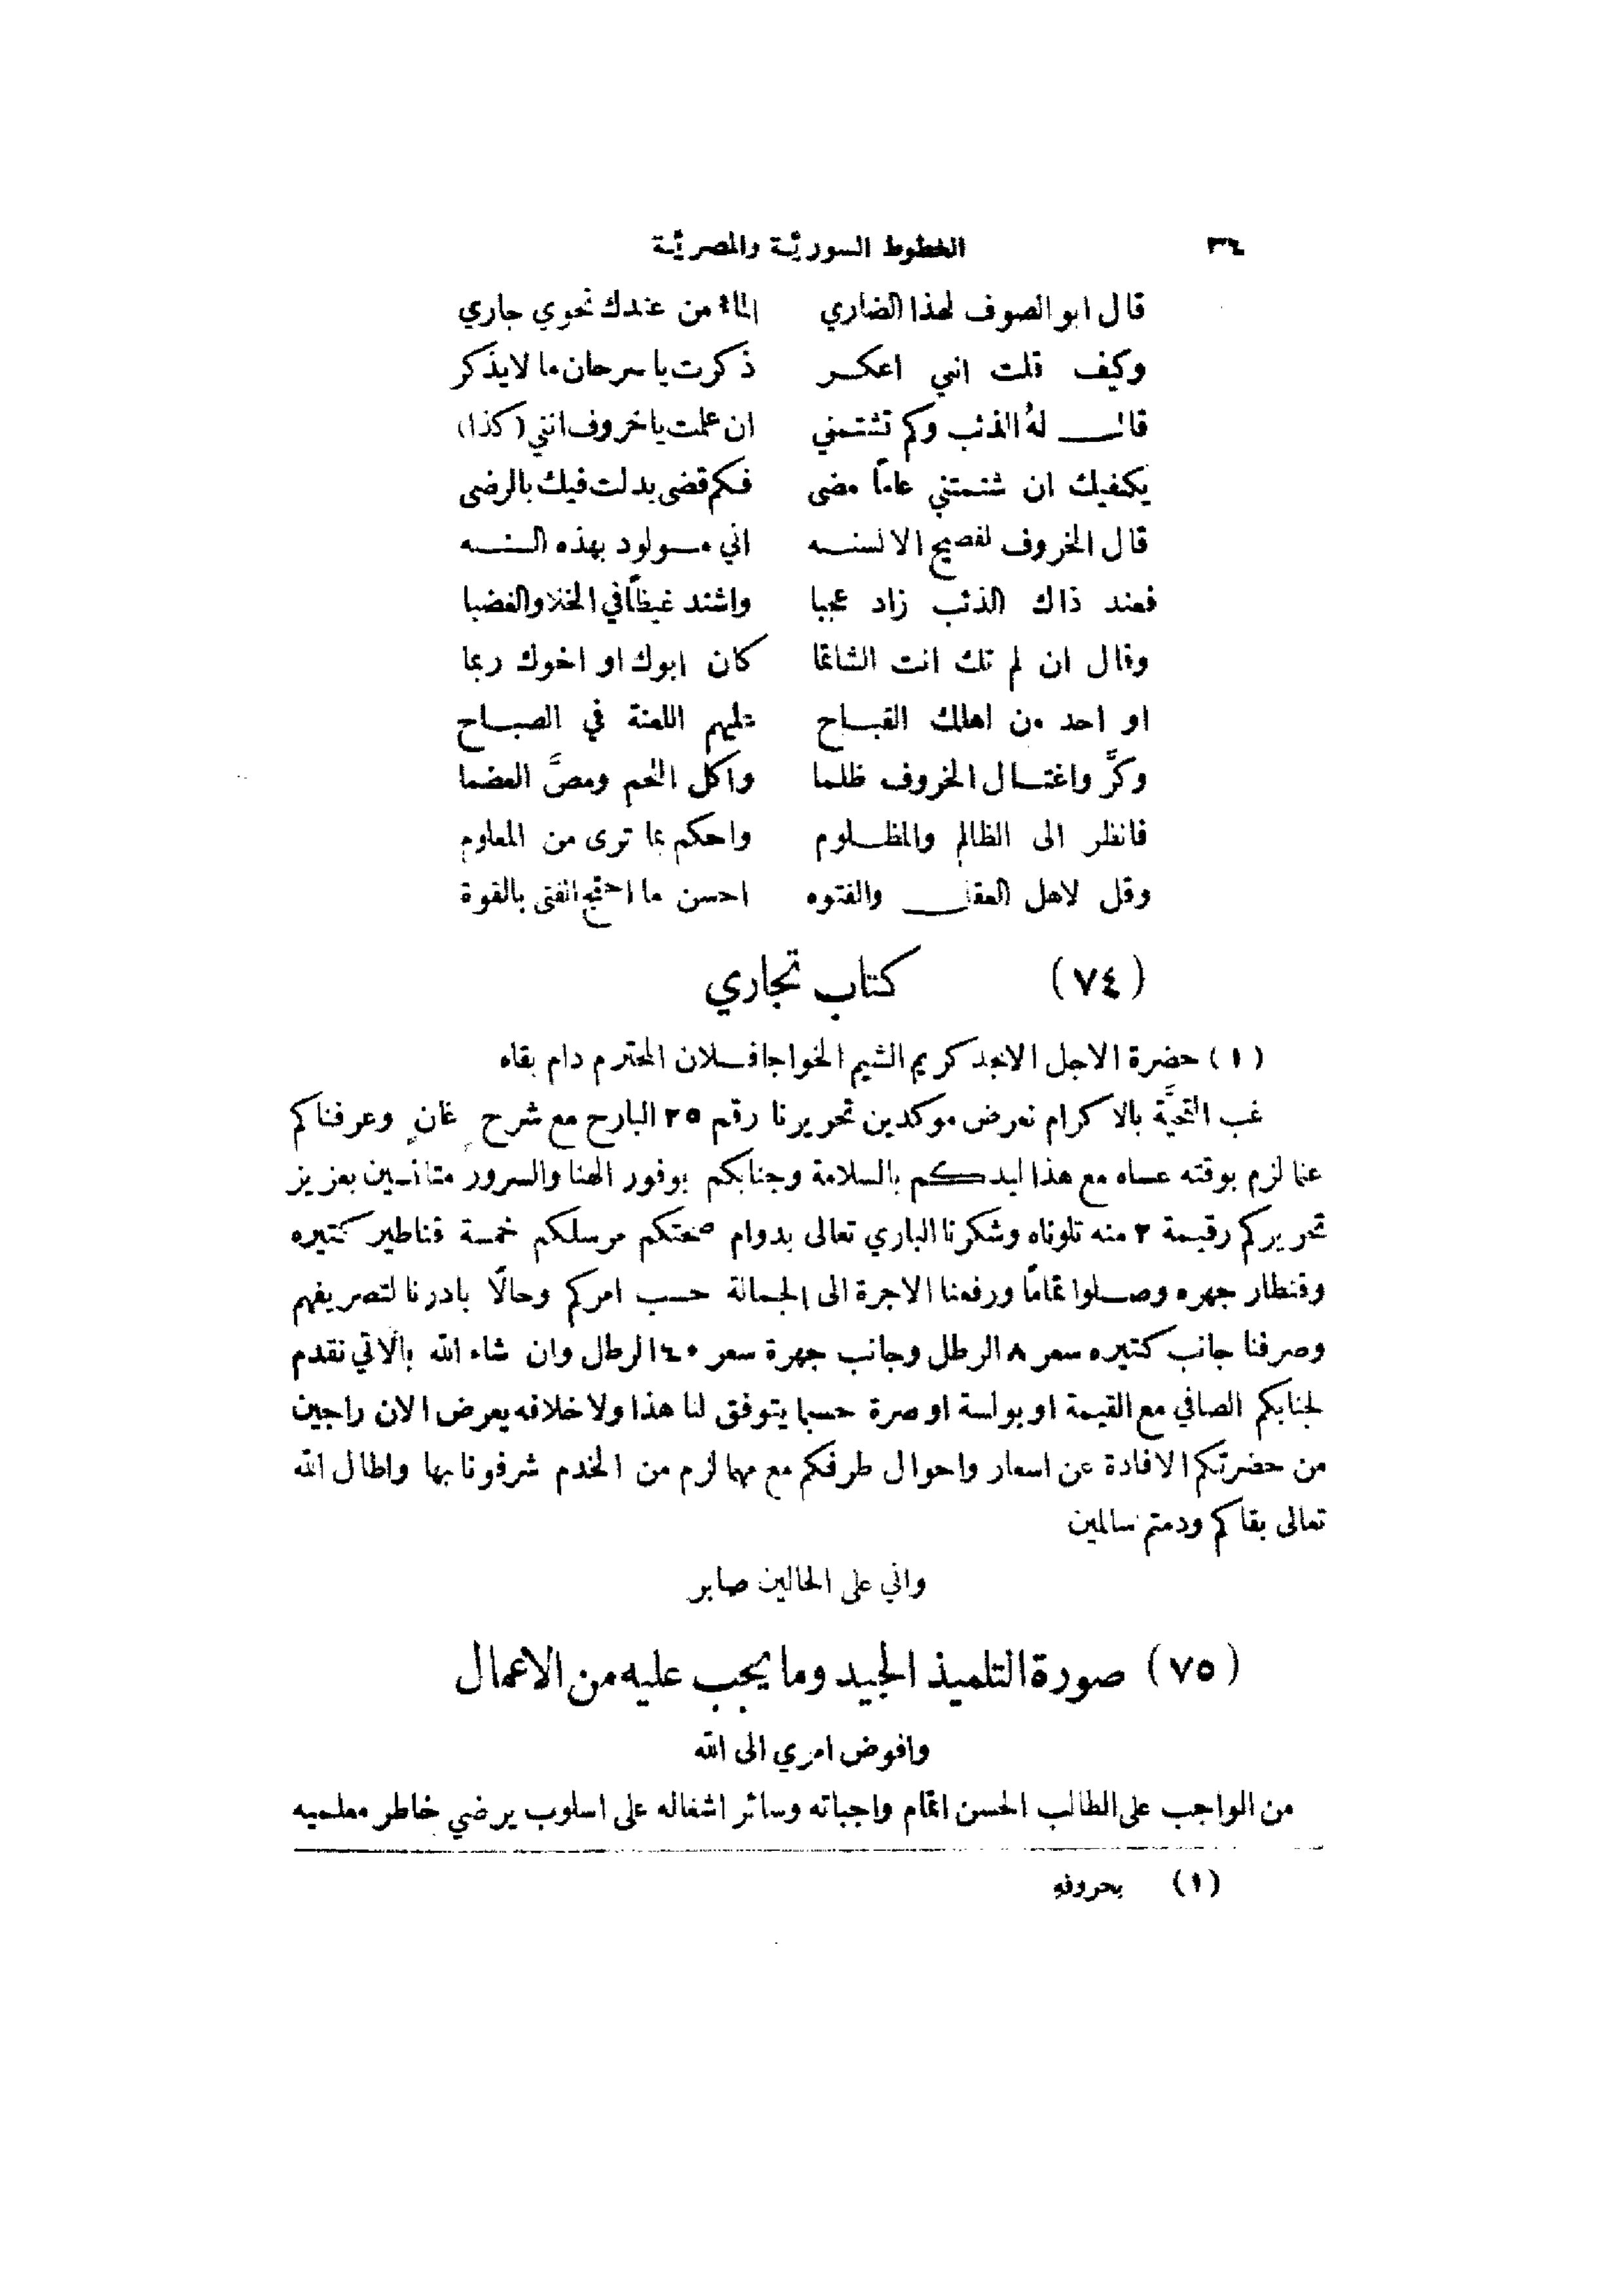 ٣٤ الخطوط السورية والمصرية
قال ابو الصوف لهذا الضاري الماء من عندك نحوي جاري
وكيف قلت انني اعكر ذكرت يا سرحان ما لا يذكر
قال لهُ الذئب وكم تشتمني ان عملت يا خروف انني (كذا)
يكفيك ان شتمتني عاماً مضى فكم قضى بدلت فيك بالرضى
قال الخروف لفصيح الالسنه اني مولود بهذه السنه
فعند ذاك الذئب زاد عجبا واشتد غيظاً في الخلا والغضبا
وقال ان لم تك انت الشاتما كان ابوك او اخوك ربما
او احد من اهلك القباح عليهم اللعنة في الصباح
وكرَّ واغتال الخروف ظلما واكل اللحم ومصَّ العضما
فانظر الى الظالم والمظلوم واحكم بما ترى من المعلوم
وقل لاهل العقل والفتوه احسن ما احتج الفتى بالقوة
(٧٤) كتاب تجاري
(١) حضرة الاجل الامجد كريم الشيم الخواجا فلان المحترم دام بقاه
غب التحيَّة بالاكرام نعرض موكدين تحريرنا رقم ٢٥ البارح مع شرح غانٍ وعرفناكم
عما لزم بوقته عساه مع هذا ليدكم بالسلامة وجنابكم بوفور الهنا والسرور متانسين بعزيز
تحريركم رقيمة ٢ منه تلوناه وشكرنا الباري تعالى بدوام صحتكم مرسلكم خمسة قناطير كتيره
وقنطار جهره وصلوا تماماً ورفعنا الاجرة الى الجمالة حسب امركم وحالاً بادرنا لتصريفهم
وصرفنا جانب كتيره سعر ٨ الرطل وجانب جهرة سعر ١٤٠ الرطل وان شاء الله بالآتي نقدم
لجنابكم الصافي مع القيمة او بولسة او صرة حسبما يتوفق لنا هذا ولا خلافه يعرض الان راجين
من حضرتكم الافادة عن اسعار واحوال طرفكم مع مهما لزم من الخدم شرفونا بها واطال الله
تعالى بقاكم ودمتم سالمين
واني على الحالين صابر
(٧٥) صورة التلميذ الجيد وما يجب عليه من الاعمال
وافوض امري الى الله
من الواجب على الطالب الحسن اتمام واجباته وسائر اشغاله على اسلوب يرضي خاطر معلميه
(١) بحروفهِ